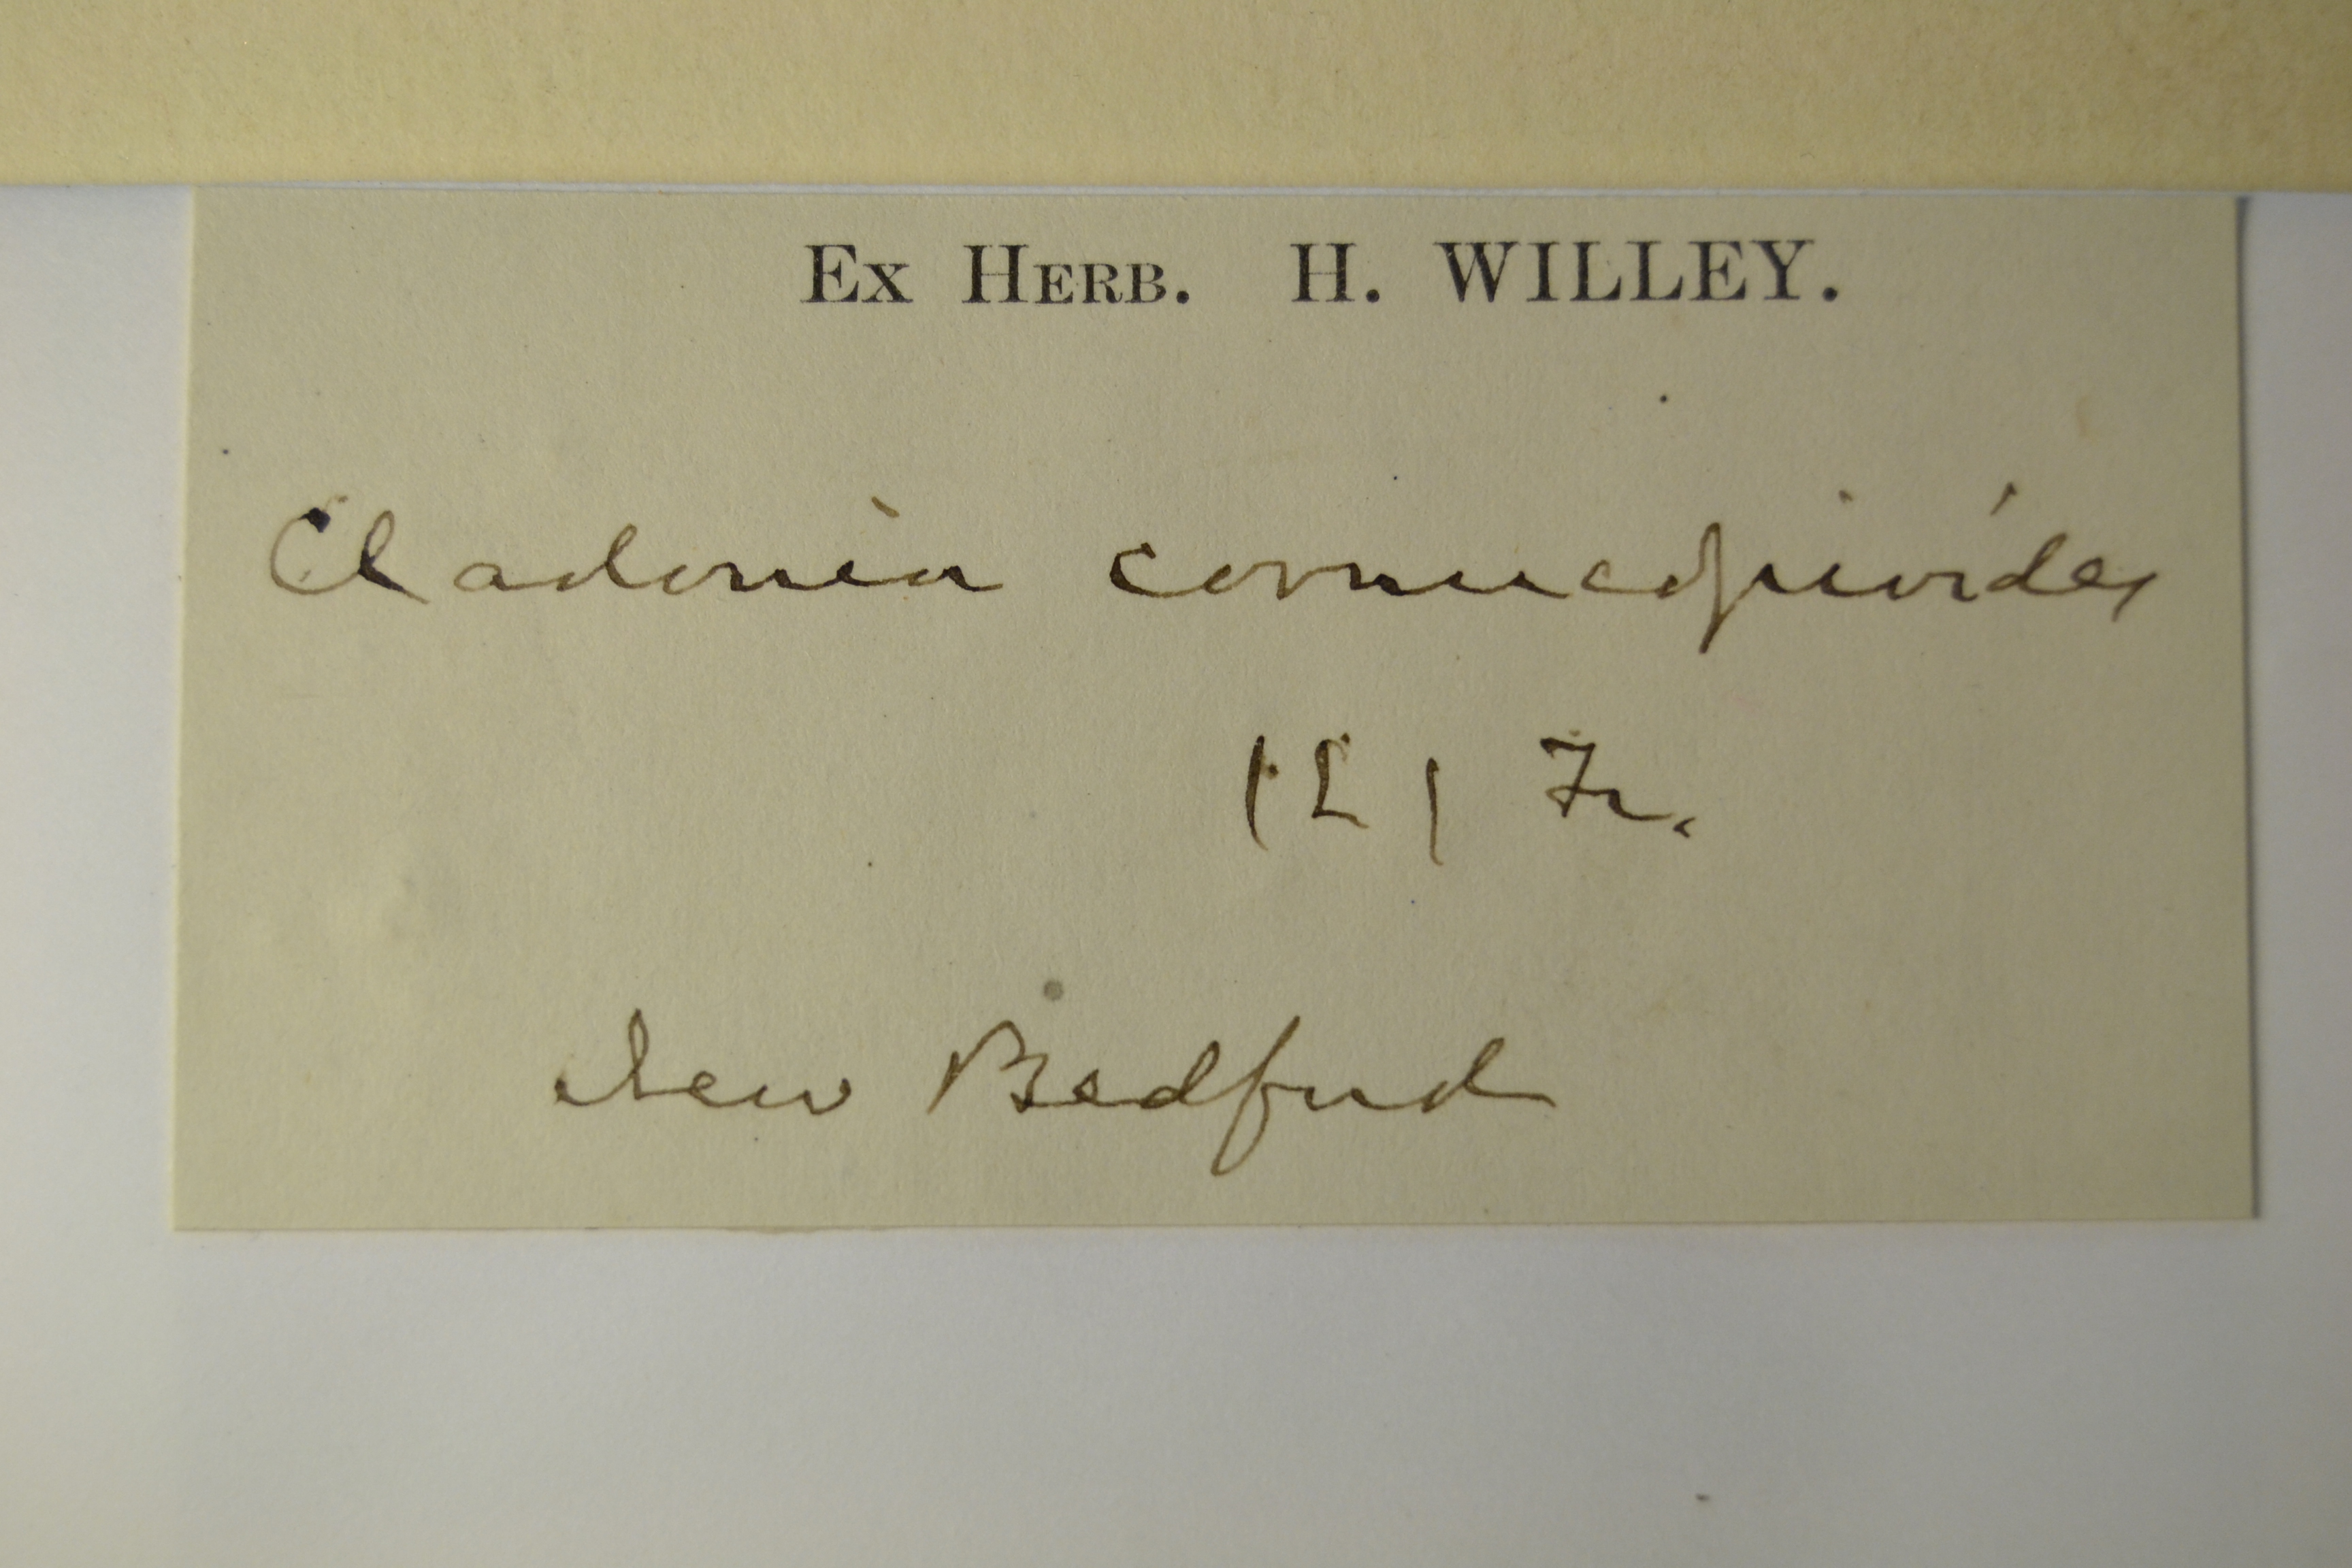 Ex Herb. H. WILLEY.
Cladonia cornucopioides
(L) Fr.
New Bedford